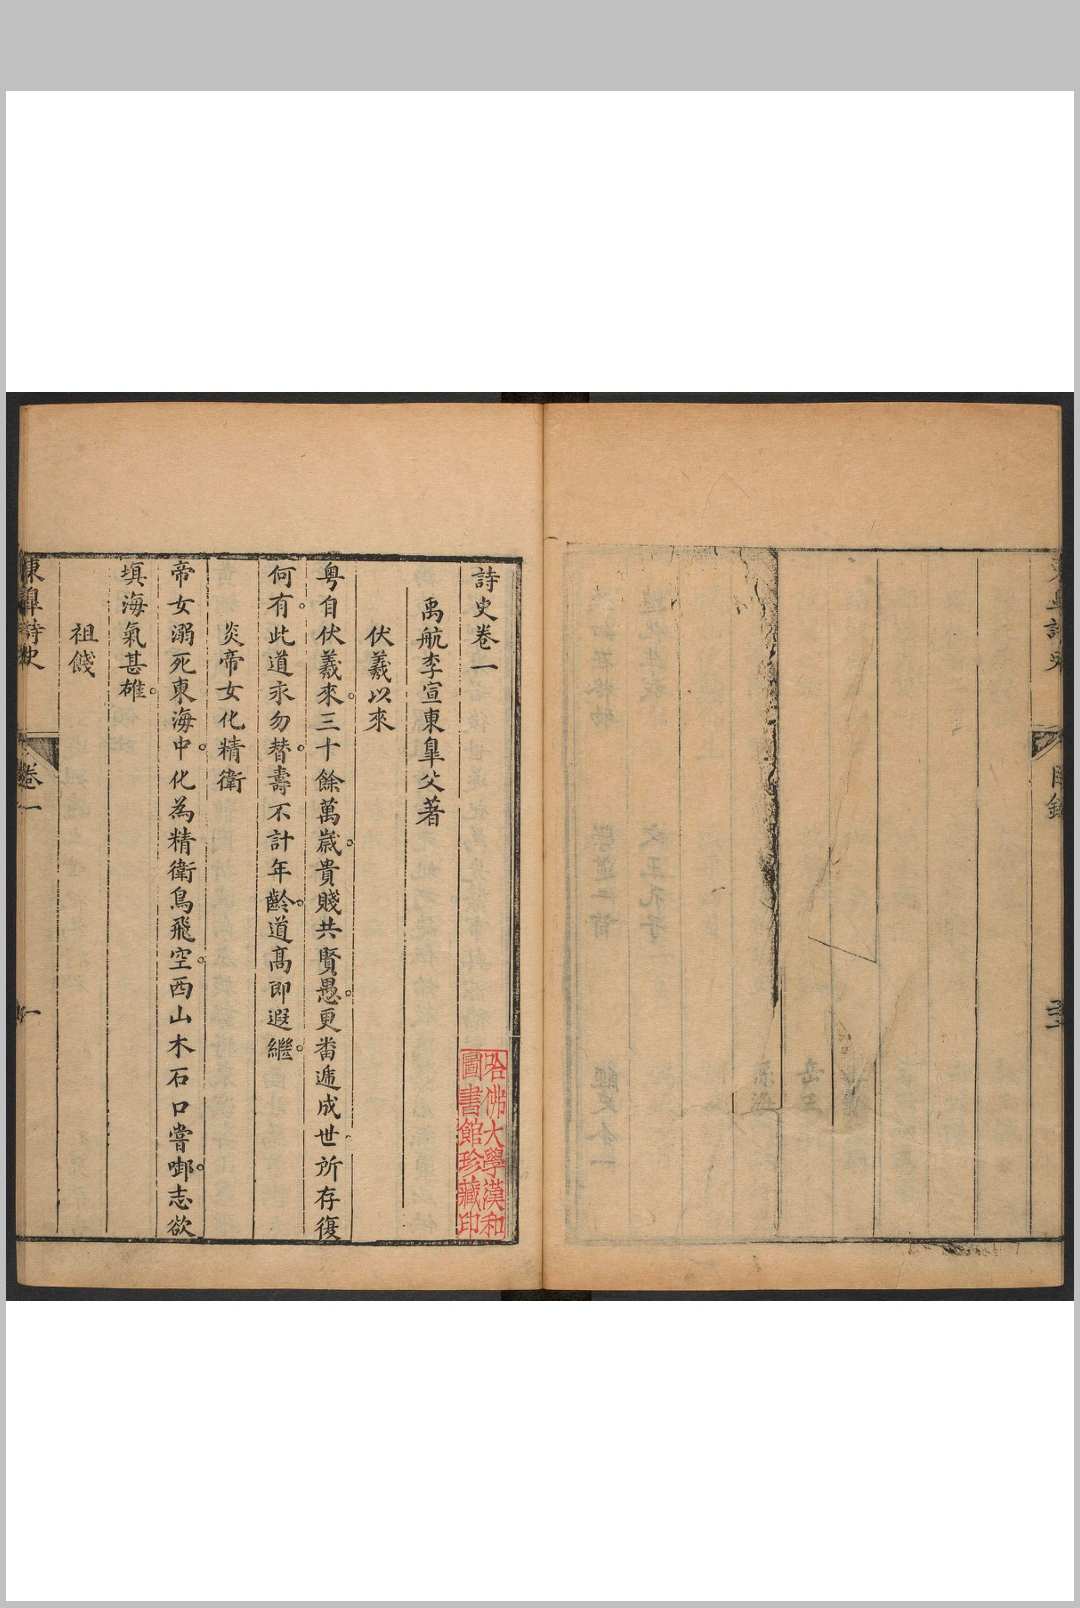 目錄
詩史卷一
禹航李宣東臯父著
伏羲以來
粤自伏羲來三十餘萬歲貴賤共賢愚更畨遞成世所存復
何有此道永勿替壽不計年齡道髙即遐繼
炎帝女化精衛
帝女溺死東海中化為精衛鳥飛空西山木石口嘗啣志欲
填海氣甚雄
祖餞
東臯詩史
卷一
一
哈佛大學漢和
圖書館珍藏印